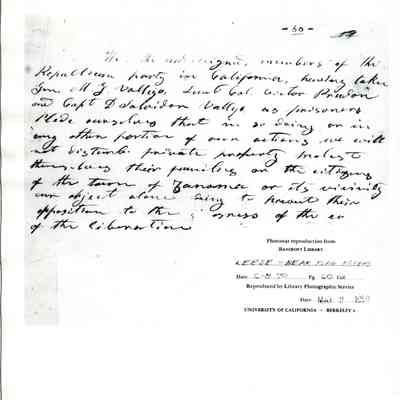 - 60 -
We the undersigned, members of the
Republican party in California, having taken
Gen. M G Vallejo, Lieut Col. Victor Prudon
and Capt D Salvidor Vallejo as prisoners
Plede ourselves that in so doing or in
any other portion of our actions we will
not disturb private property molest
themselves their families or the citizens
of the town of Zanoma or its vicinity
our object alone being to prevent their
opposition to the of the
of the liberation
Photostat reproduction from
BANCROFT LIBRARY
LEESE - BEAR FLAG PAPERS
Date Pg. 60 Col.
Reproduced by Library Photographic Service
Date
UNIVERSITY OF CALIFORNIA - BERKELEY 4